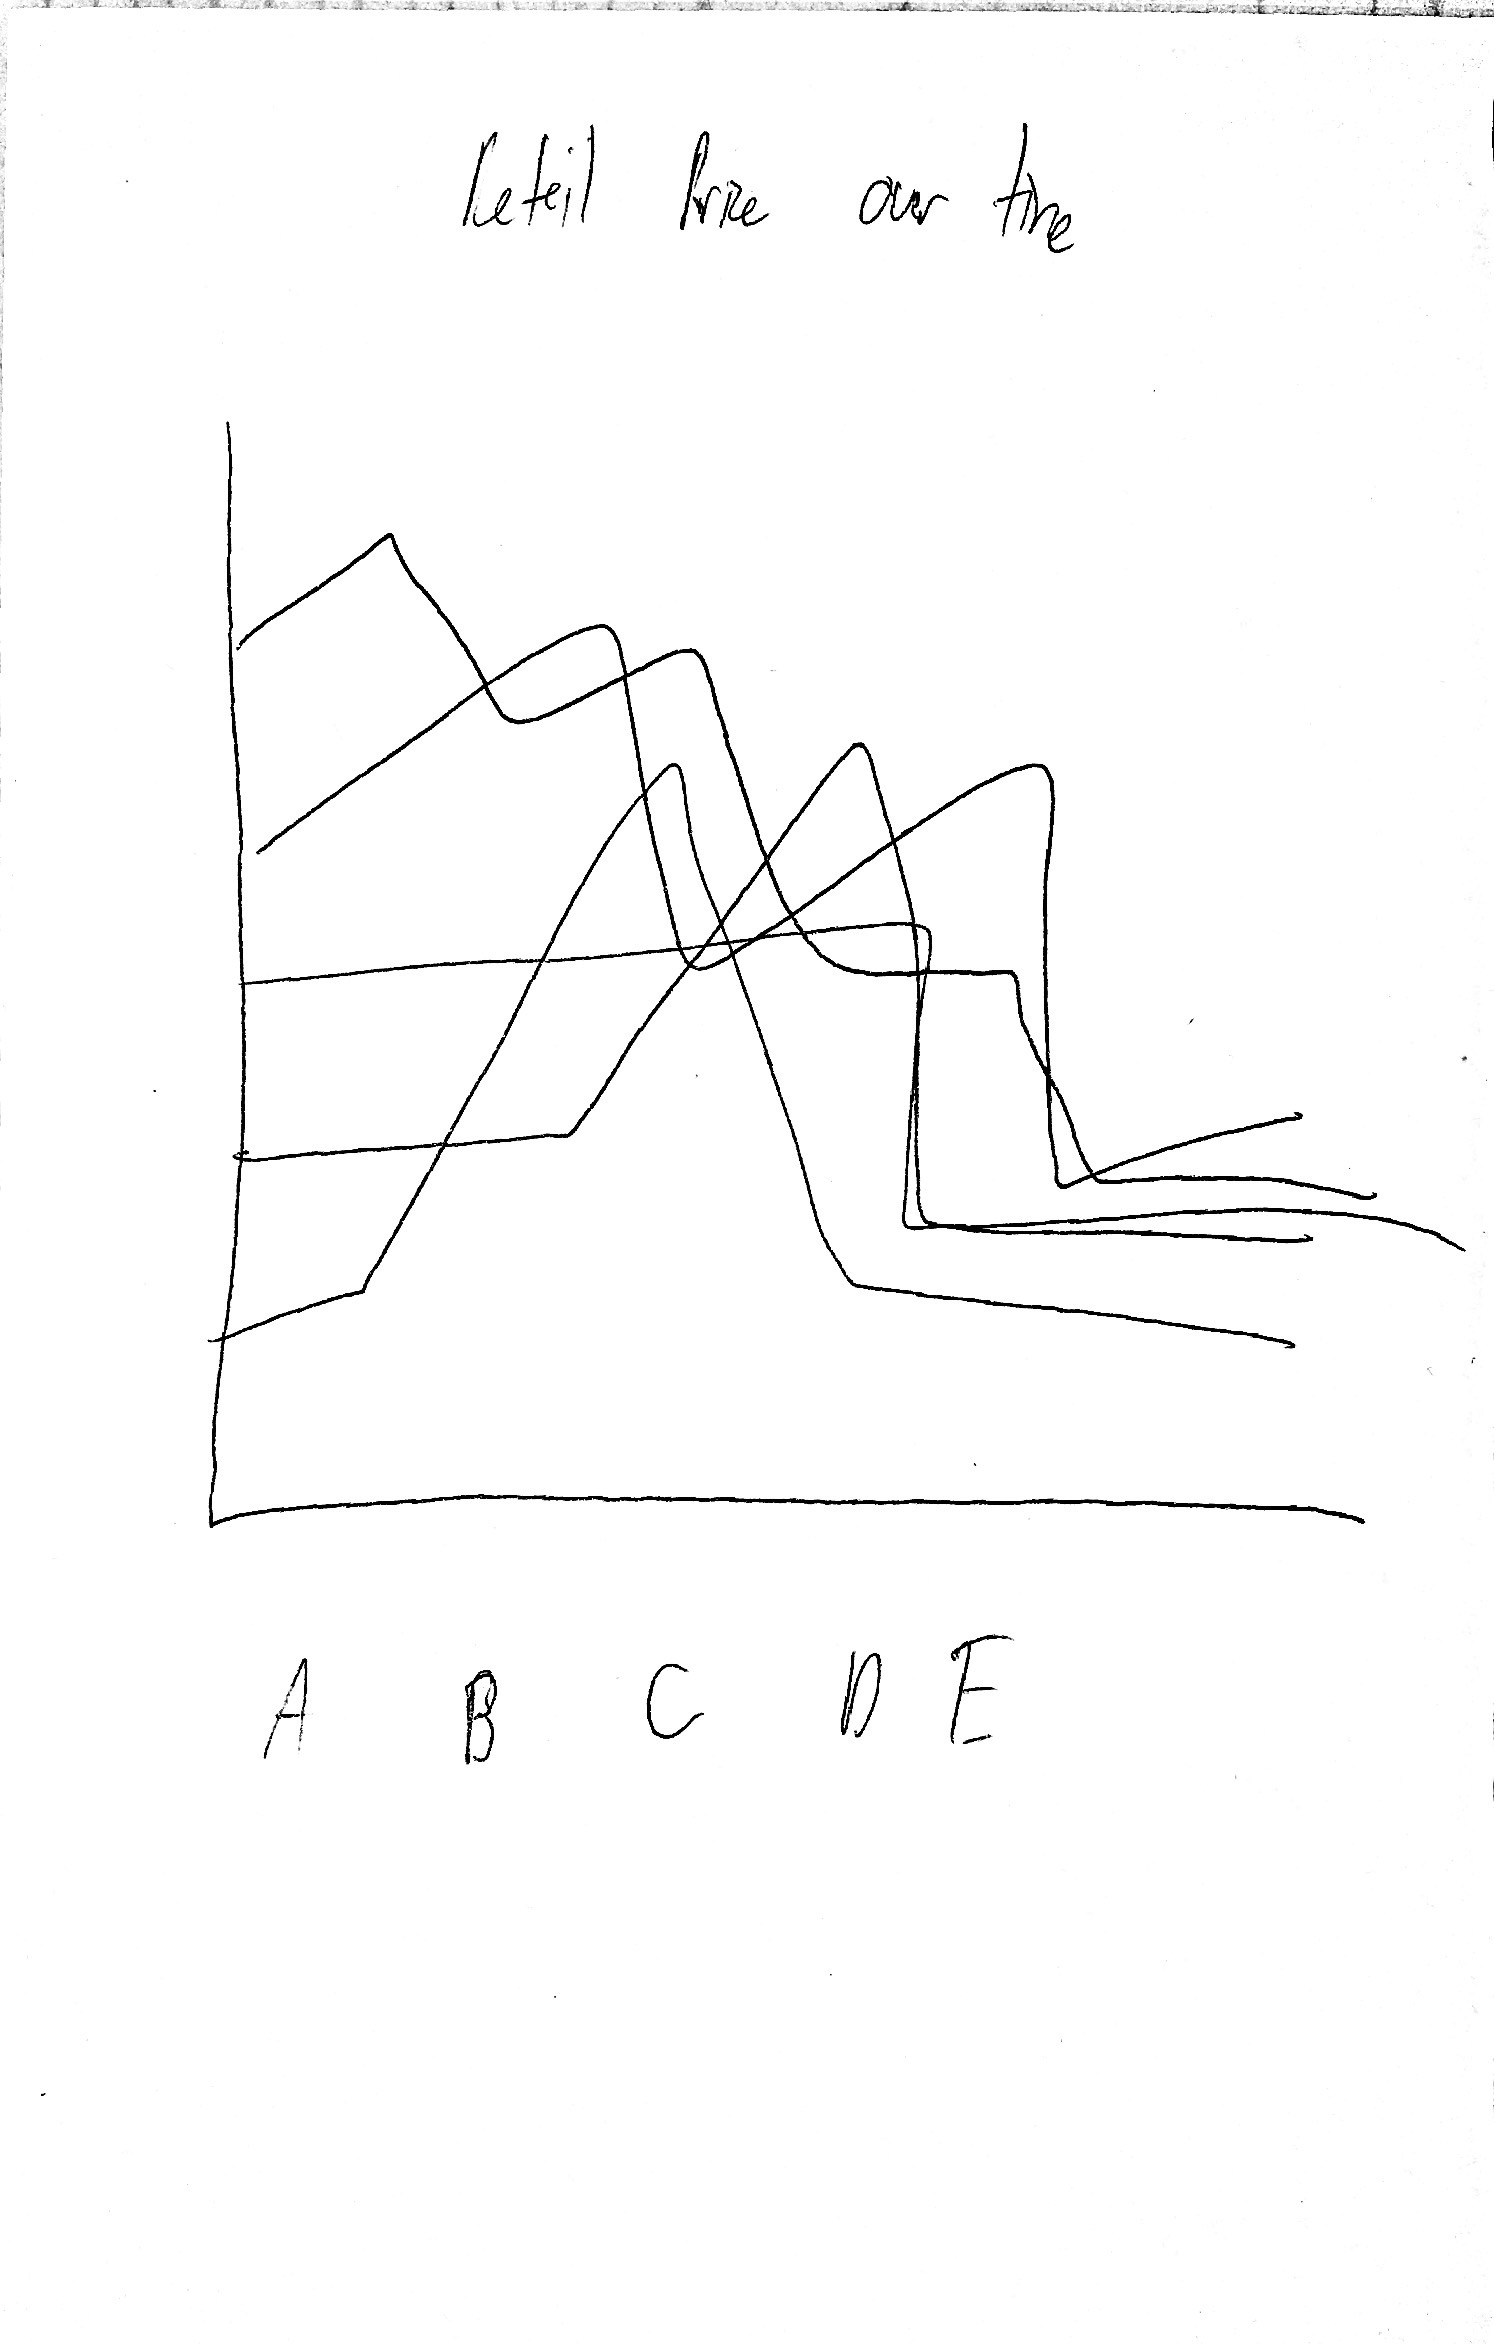 Retail Price over time
A B C D E